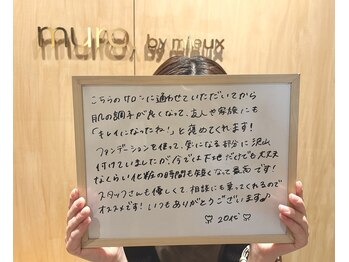 muro by mieux
こちらのサロンに通わせていただいてから
肌の調子が良くなって、友人や家族にも
「キレイになったね!」と褒めてくれます!
ファンデーションを使って、気になる部分に沢山
付けていましたが、今では下地だけでも大丈夫
なくらい化粧の時間も短くなって最高です!
スタッフさんも優しくて相談にも乗ってくれるので
オススメです!いつもありがとうございます♪
20代